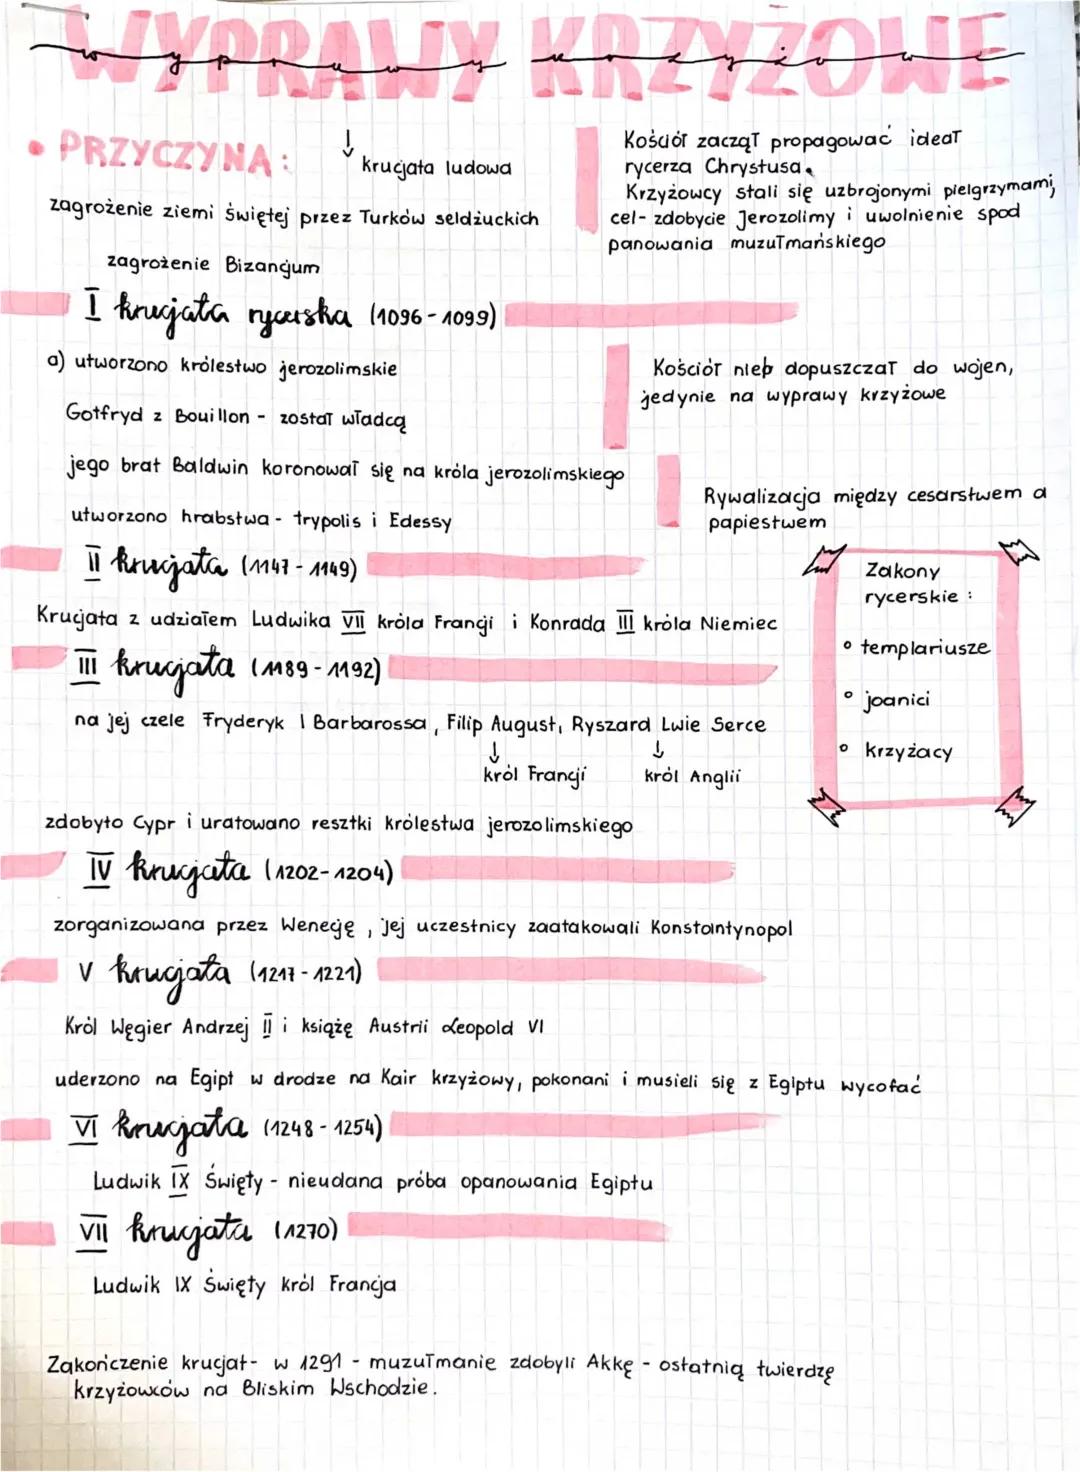 WYPRAWY KRZYŻOWE
wyprawy krzyżowe
• PRZYCZYNA:
↓
krucjata ludowa
zagrożenie ziemi świętej przez Turków seldżuckich
zagrożenie Bizancjum
Kościół zaczął propagować ideał
rycerza Chrystusa.
Krzyżowcy stali się uzbrojonymi pielgrzymami,
cel- zdobycie Jerozolimy i uwolnienie spod
panowania muzułmańskiego
I krucjata rycerska (1096-1099)
a) utworzono królestwo jerozolimskie
Gotfryd z Bouillon - został władcą
jego brat Baldwin koronował się na króla jerozolimskiego
utworzono hrabstwa - trypolis i Edessy
Kościół nie dopuszczał do wojen,
jedynie na wyprawy krzyżowe
Rywalizacja między cesarstwem a
papiestwem
II krucjata (1147-1149)
Krucjata z udziałem Ludwika VII króla Francji i Konrada III króla Niemiec
Zakony
rycerskie:
° templariusze
° joanici
° krzyżacy
III krucjata (1189-1192)
na jej czele Fryderyk I Barbarossa, Filip August, Ryszard Lwie Serce
↓ ↓
król Francji król Anglii
zdobyto Cypr i uratowano resztki królestwa jerozolimskiego
IV krucjata (1202-1204)
zorganizowana przez Wenecję, jej uczestnicy zaatakowali Konstantynopol
V krucjata (1217-1221)
Król Węgier Andrzej II i książę Austrii Leopold VI
uderzono na Egipt w drodze na Kair krzyżowy, pokonani i musieli się z Egiptu wycofać
VI krucjata (1248-1254)
Ludwik IX Święty - nieudana próba opanowania Egiptu
VII krucjata (1270)
Ludwik IX Święty król Francja
Zakończenie krucjat- w 1291 - muzułmanie zdobyli Akkę - ostatnią twierdzę
krzyżowców na Bliskim Wschodzie.